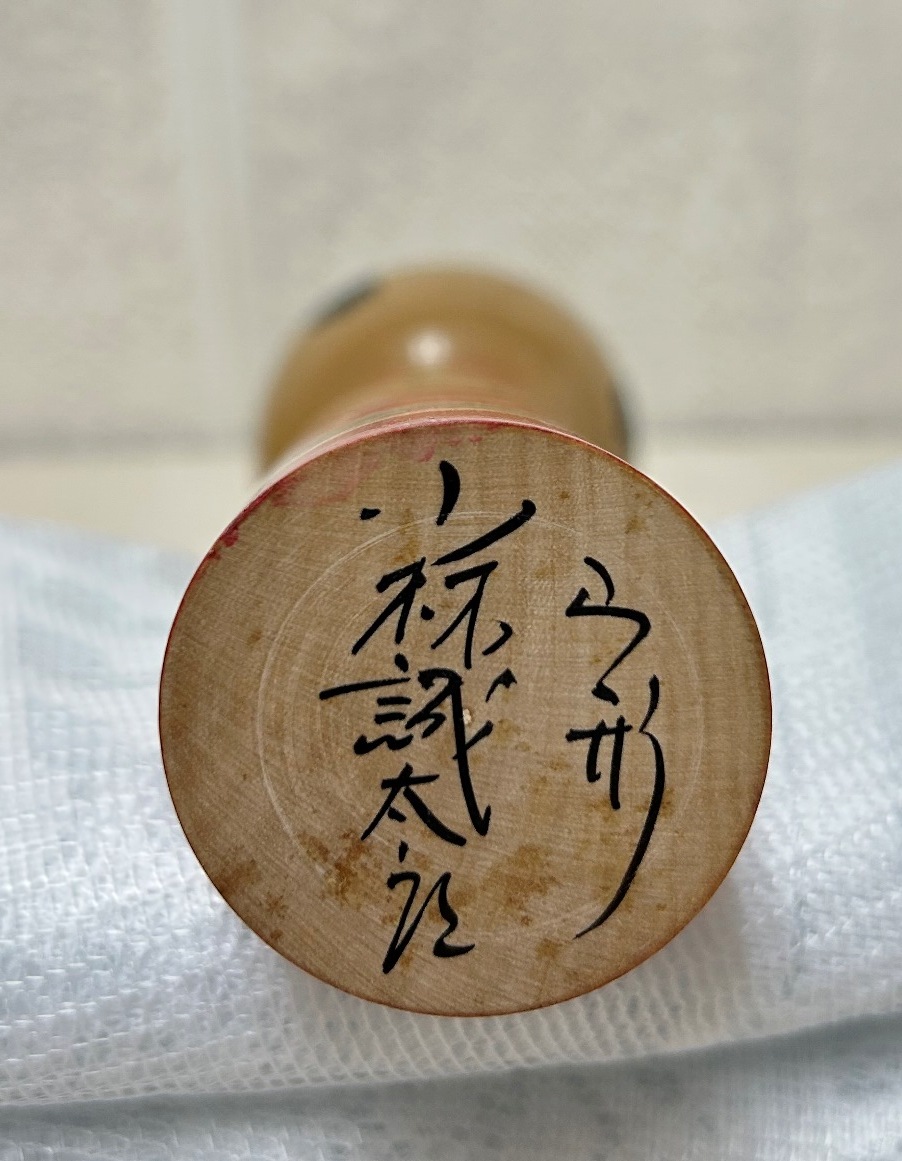 山形
小林誠太郎